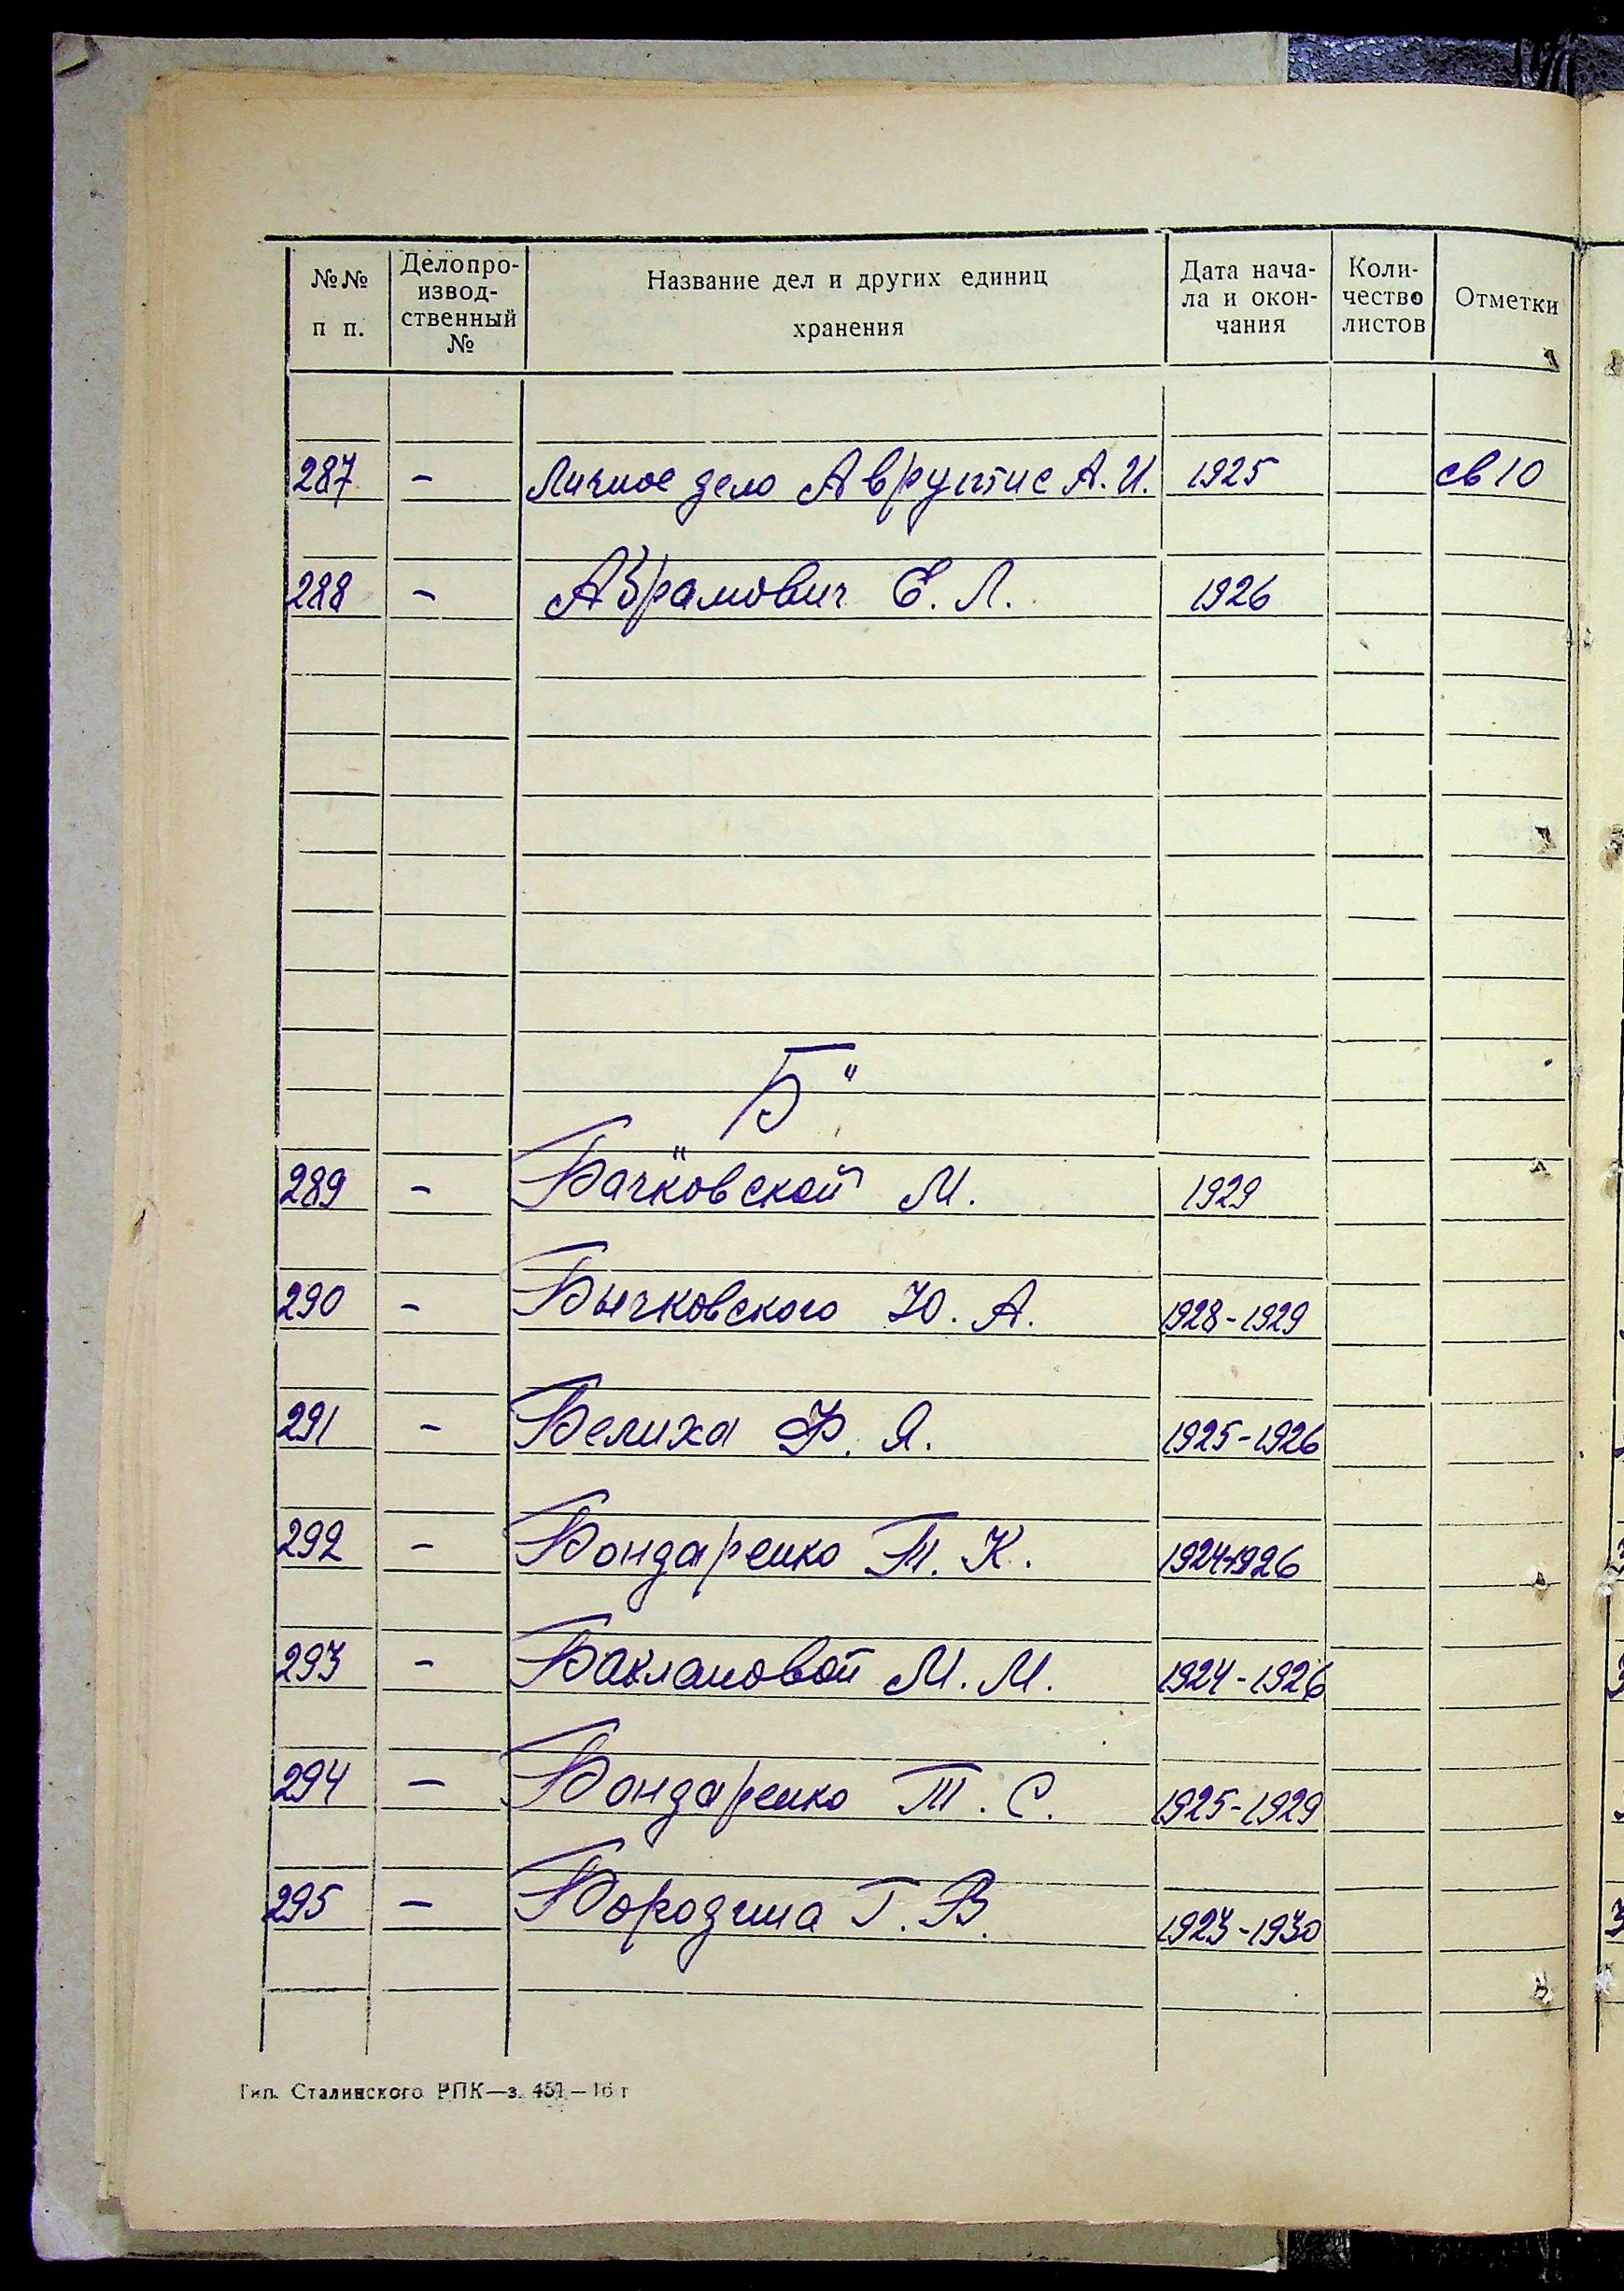 №№
п п.
Делопро-
извод-
ственный
№
Название дел и других единиц
хранения
Дата нача-
ла и окон-
чания
Коли-
чество
листов
Отметки
287 - Личное дело Аврутис А. И. 1925 св 10
288 - Абрамович Е. Л. 1926
Б"
289 - " Бачковской М. 1929
290 - Бычковского Ю. А. 1928-1929
291 - Белиха Ф. Я. 1925-1926
292 - Бондаренко Т. К. 1924-1926
293 - Баклановой М. М. 1924-1926
294 - Бондаренко Т. С. 1925-1929
295 - Бородина Г. В. 1923-1930
Тип. Сталинского РПК—з. 451—16 г